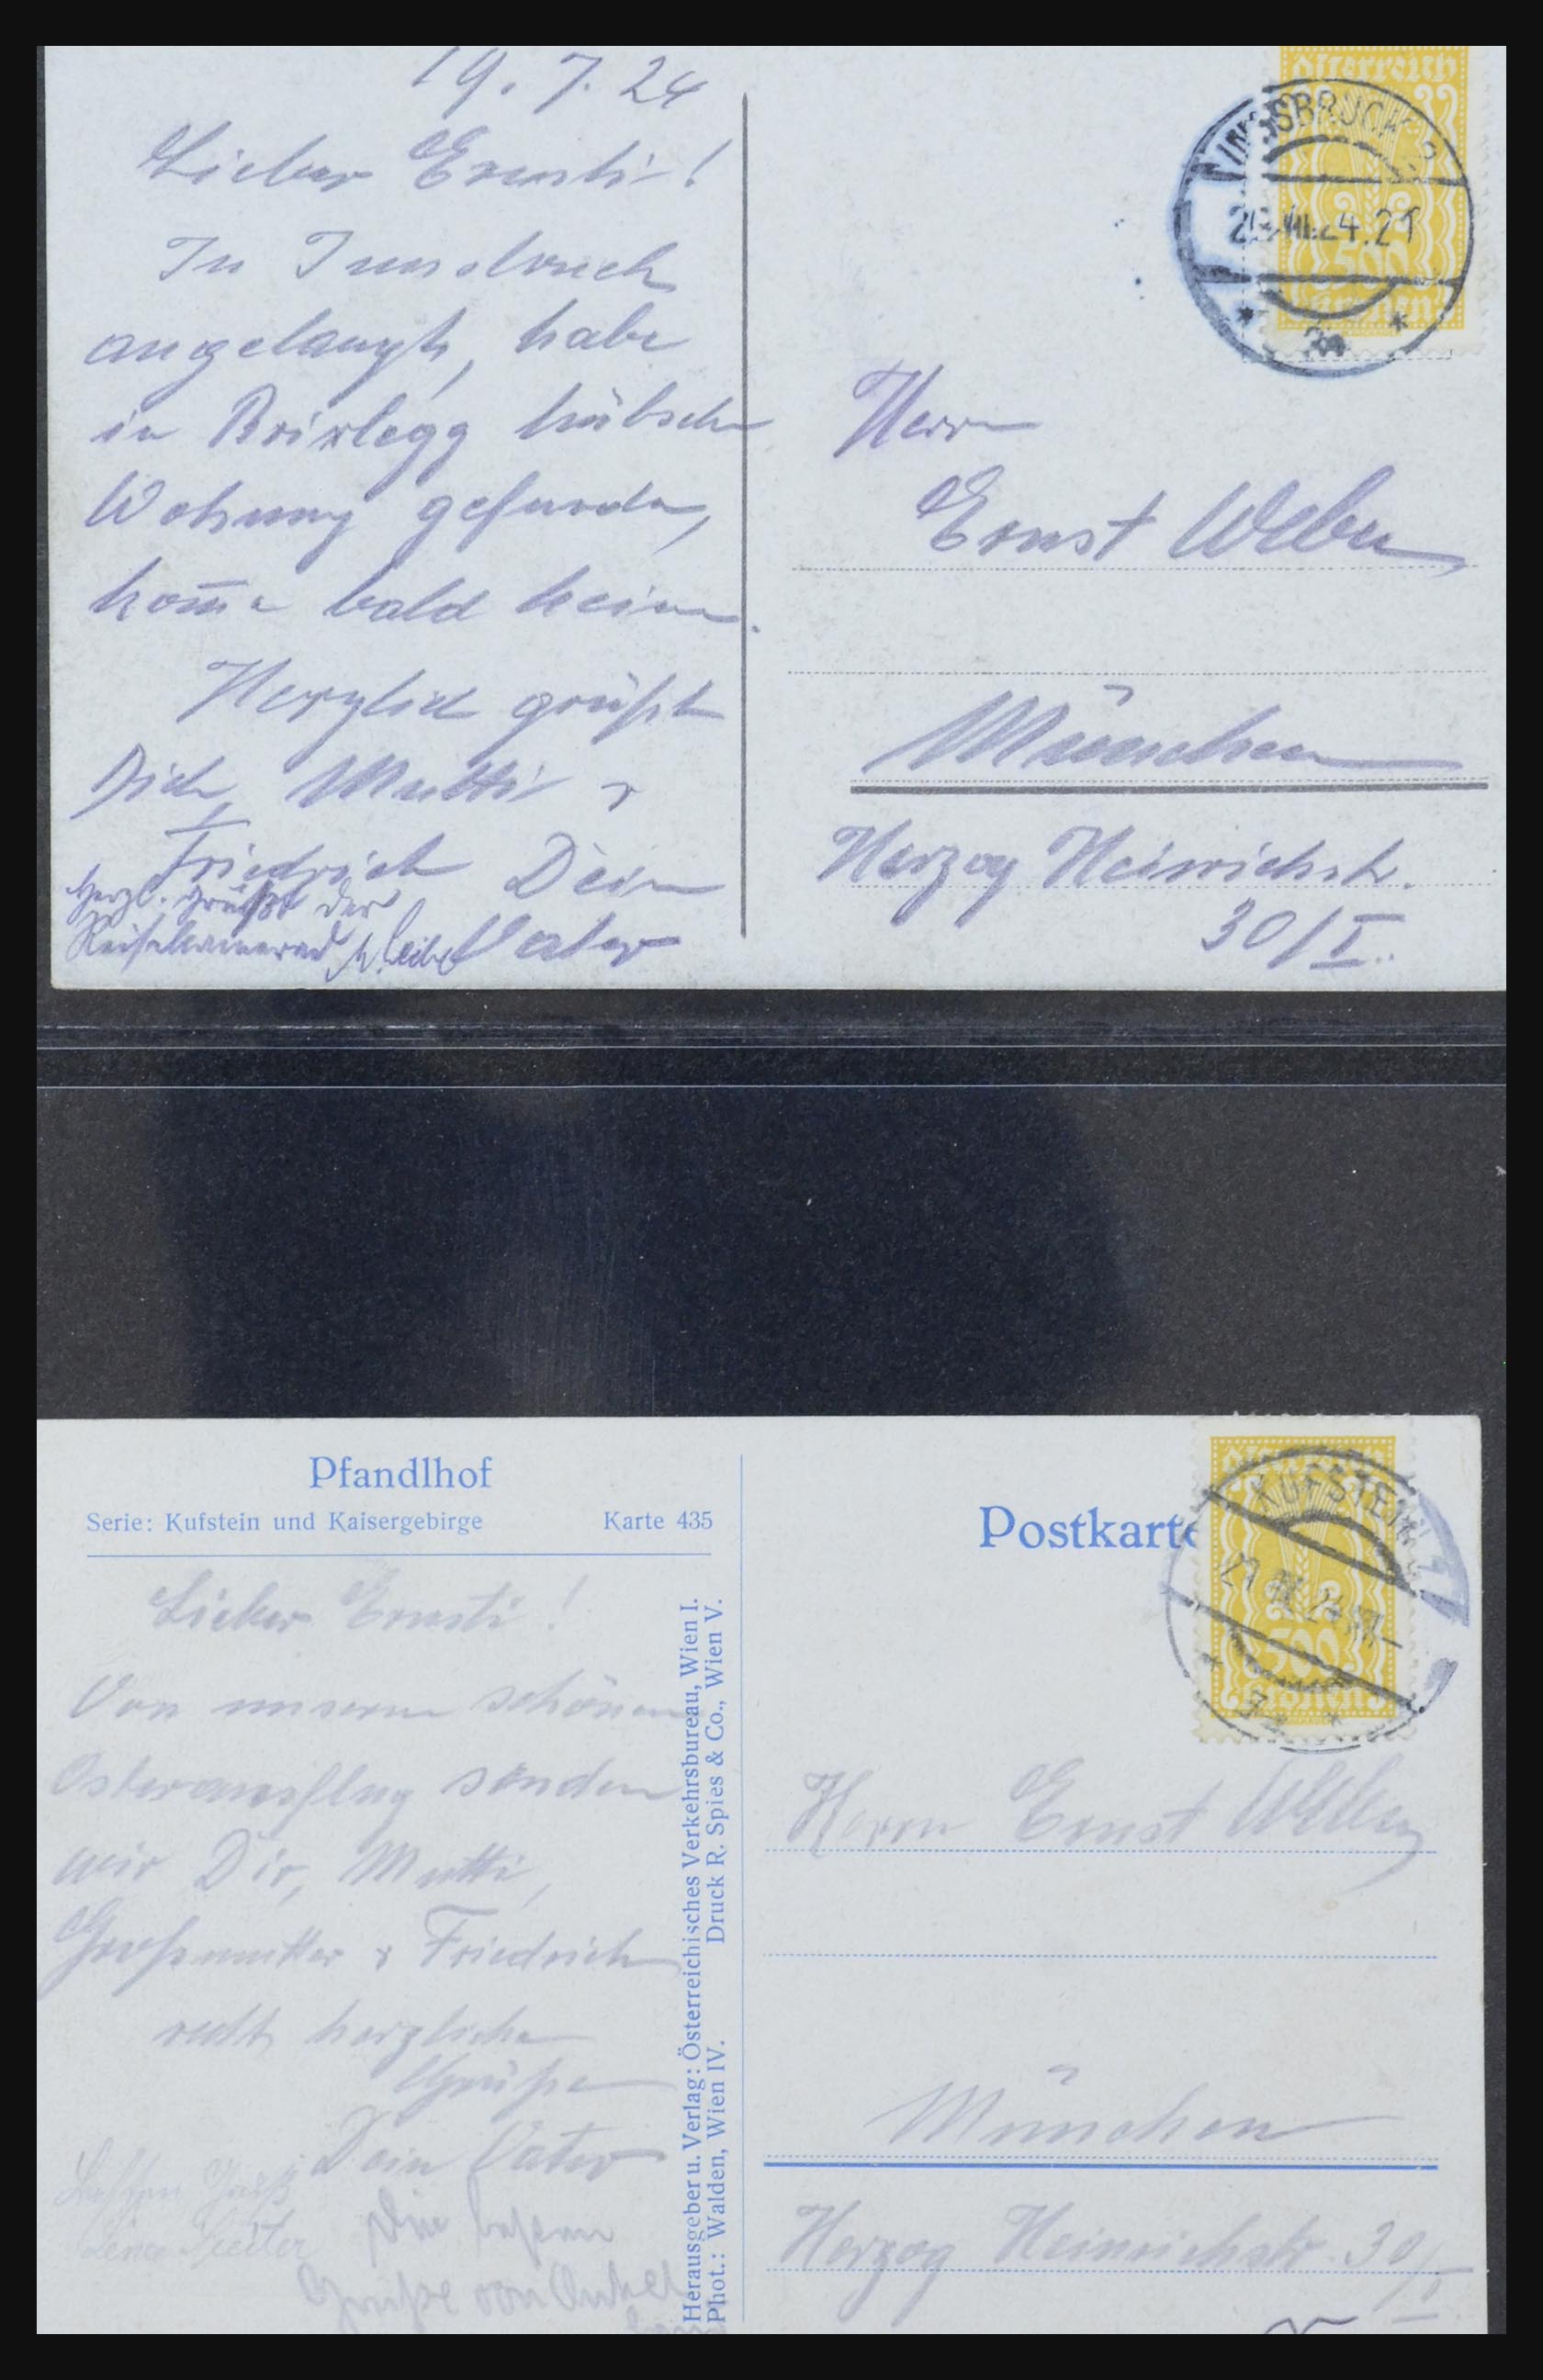 19. 7. 24
Lieber Ernsti!
In Innsbruck
angelangt, habe
in Brixlegg hübsche
Wohnung gefunden,
kom̅e bald heim.
Herzlich grüßt
Dich, Mutti &
Friedrich Dein
Vater
Herzl. grüßt der
Reisekamerad
Österreich
500
Kronen
INNSBRUCK 2
VII.24.21
* *
Herrn
Ernst Weber
München
Herzog Heinrichstr.
30/I.
Pfandlhof
Serie: Kufstein und Kaisergebirge Karte 435
Lieber Ernsti!
Von unserm schönen
Osterausflug senden
wir Dir, Mutti,
Großmutter & Friedrich
recht herzliche
Grüße
Dein Vater
Die besten
Grüße von Onkel
Herausgeber u. Verlag: Österreichisches Verkehrsbureau, Wien I.
Phot.: Walden, Wien IV. Druck R. Spies & Co., Wien V.
Postkarte
500
Kronen
KUFSTEIN
Herrn Ernst Weber
München
Herzog Heinrichstr. 30/I